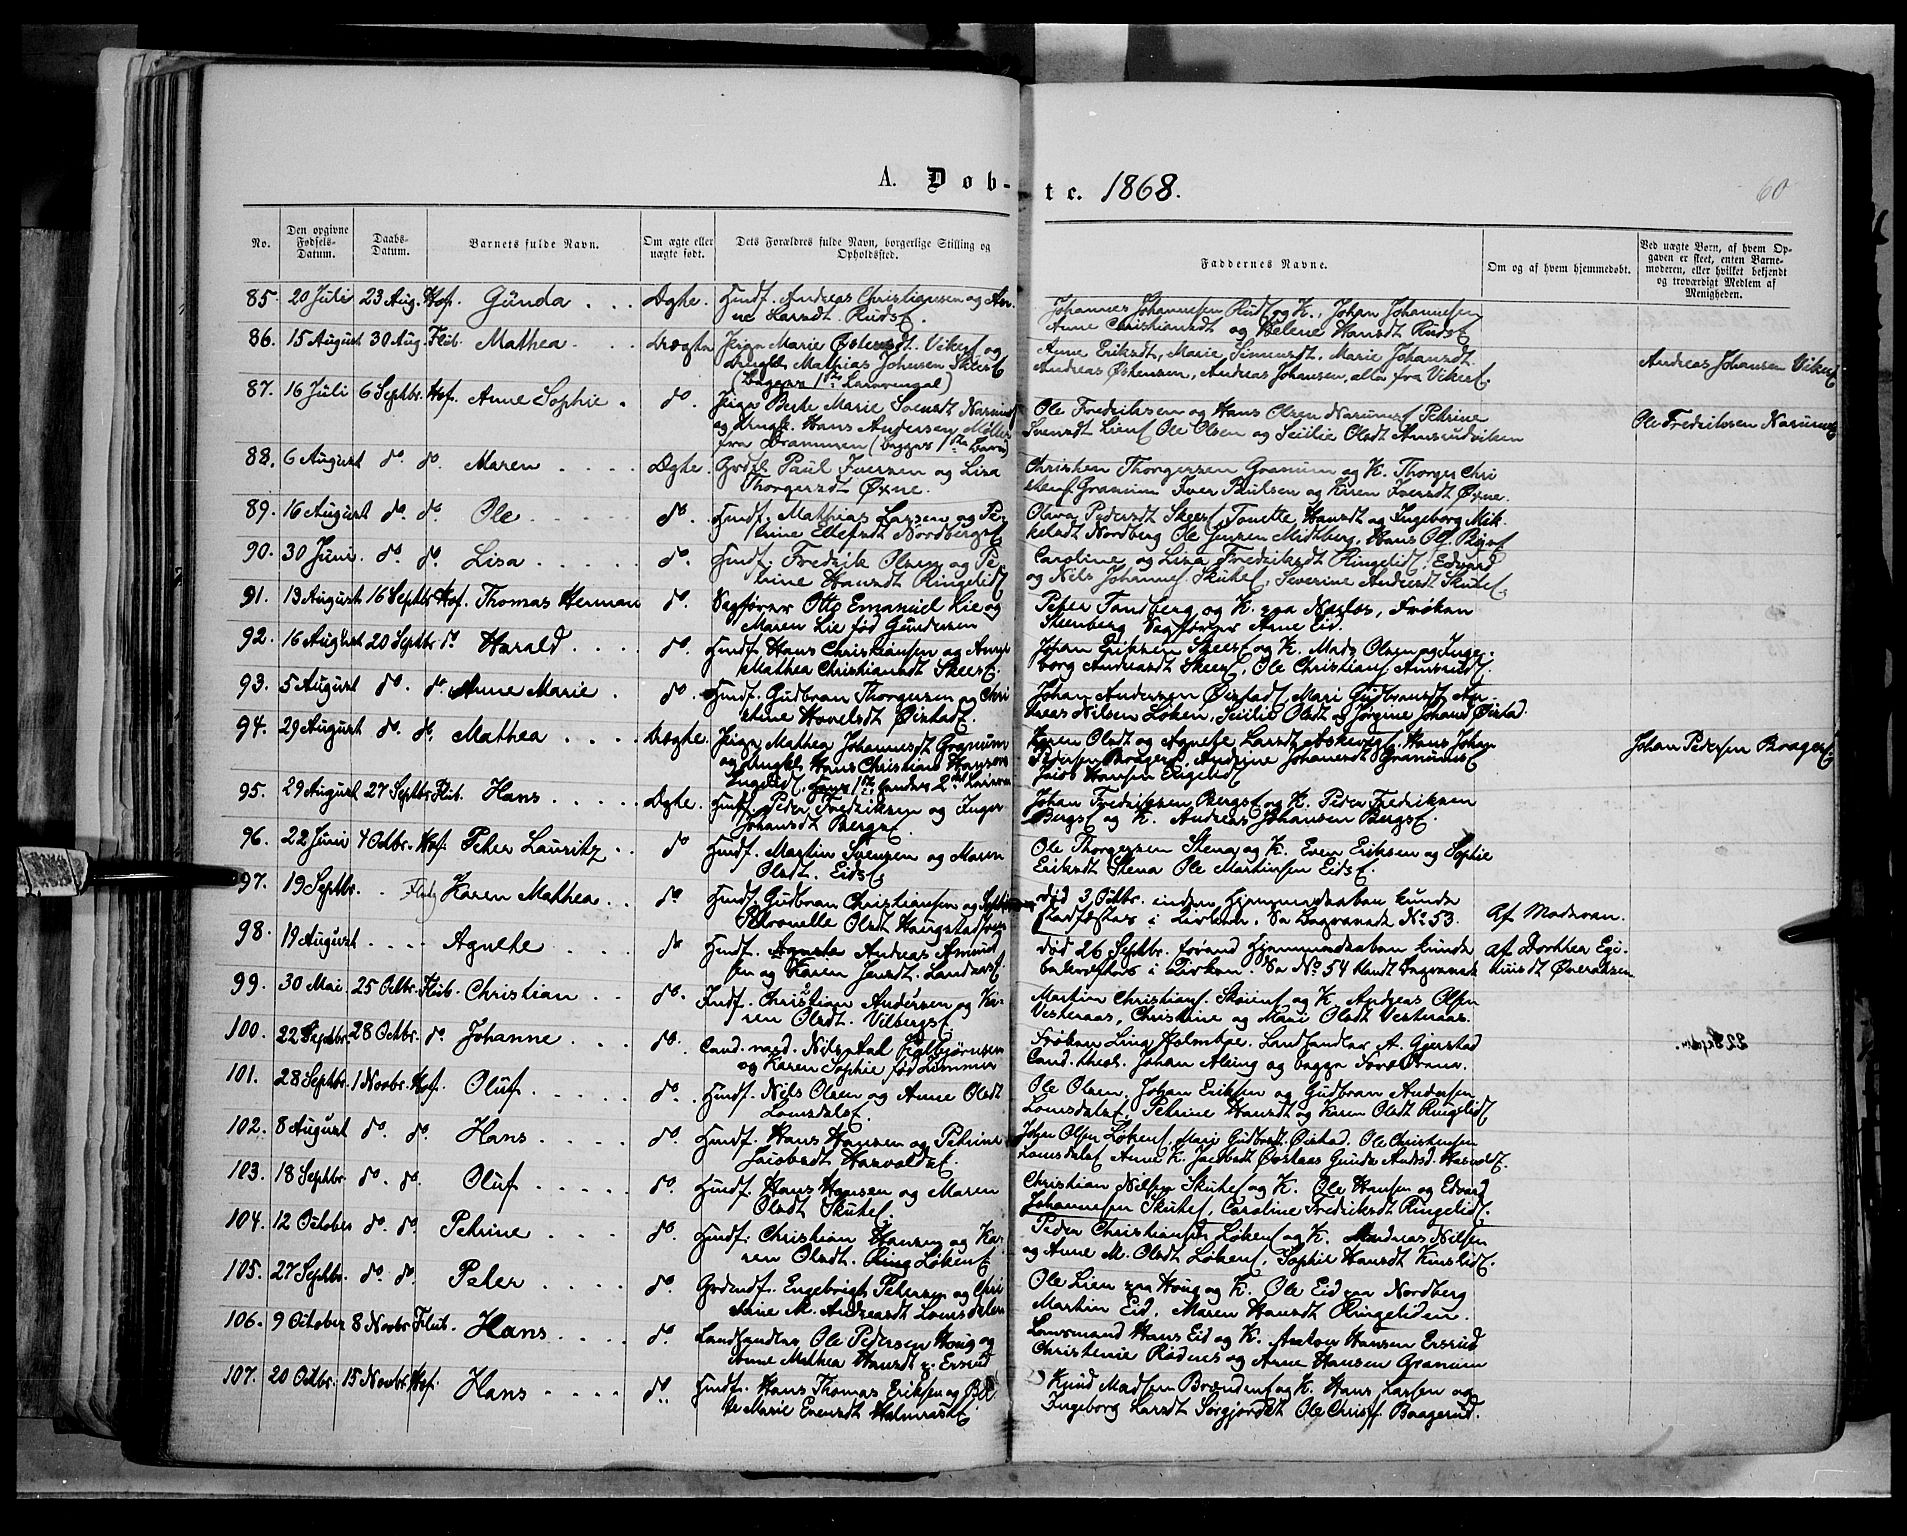 A. Døb-te. 1868.
60
No.
Den opgivne Fødsels-Datum.
Daabs-Datum.
Barnets fulde Navn.
Om ægte eller uægte født.
Dets Forældres fulde Navn, borgerlige Stilling og Opholdssted.
Faddernes Navne.
Om og af hvem hjemmedøbt.
Ved uægte Børn, af hvem Opgaven er skeet, enten Barnemoderen, eller hvilket bekjendt og troværdigt Medlem af Menigheden.
85. 20 Juli 23 Aug. Hof. Gunda Ægte. Husf. Andreas Christiansen og An-
ne Larsdt. Ruds
Johannes Johannesen Ruds og K., Johan Johannesen
Anne Christiansdt og Helene Hansdt Ruds
86. 15 August 30 Aug. Flub. Mathea Uægte Pige Marie Østensdt. Viker og
Ungk. Mathias Johnsen Skeer
(Begges 1ste Leiermaal)
Anne Eriksdt, Marie Simensdt. Marie Johansdt.
Andreas Østensen, Andreas Johansen, alle fra Viker.
Andreas Johansen Viker
87. 16 Juli 6 Septbr. Hof. Anne Sophie do. Pige Berte Marie Svensdt Narum
og Ungk. Hans Andersen Møller
fra Drammen (begges 1ste Barn)
Ole Fredriksen og Hans Olsen Narum Petrine
Svensdt Lien Ole Olsen og Seiilie Olsdt Amsrudviken
Ole Fredriksen Narum
88. 6 August do. do. Maren Ægte. Paul Iversen og Lisa
Thorgersdt Øxne.
Christen Thorgersen Granum og K. Thorger Chri
stens. Granum Iver Paulsen og Karen Iversdt Øxne.
89. 16 August do. do. Ole do. Husf. Mathias Larsen og Pe-
trine Ellefsdt Nordberg
Oliva Pedersdt Skeer, Tonette Hansdt og Ingeborg Mik-
kelsdt Nordberg Ole Jensen Midtberg, Hans Ol.
90. 30 Juni do. do. Lisa do. Husf. Fredrik Olsen og Pe-
trine Hansdt Ringelid
Caroline og Lisa Fredriksdt Ringelid, Edvard
og Nils Johannes. Skutel, Severine Andersdt Skutel.
91. 13 August 16 Septbr Hof. Thomas Herman do. Sagfører Otto Emanuel Lie og
Maren Lie fød Gundersen
Peter Tandberg og K. paa Næsløs, Frøken
Steenberg Sagfører Arne Eid.
92. 16 August 20 Septbr do Harald do. Husf. Hans Christiansen og Anne
Mathea Christiansdt Skeer.
Johan Eriksen Skeer og K. Mads Olsen og Inge-
borg Andreasdt Skeer, Ole Christians. Amsrud.
93. 5 August do. do. Anne Marie do. Husf. Gudbran Thorgersen og Chri
stine Hovelsdt Øistad.
Johan Andersen Øistad, Mari Gudbransdt, An-
dreas Nilsen Løken, Seiilie Olsdt og Jørgine Johansd Øistad.
94. 29 August do. do. Mathea Uægte. Pige Mathea Johannesdt Granum
og Ungkl. Hans Christian Hansen
Ingelid, Hans 1ste hendes 2det Leierm
Karen Olsdt og Agnethe Larsdt Askerud, Hans Johan
Pedersen Braager, Andrine Johansdt Granum
Jacob Hansen Engelid
Johan Pedersen Braager.
95. 29 August 27 Septbr. Flub. Hans Ægte. Husf. Peder Fredriksen og Inger
Johansdt Berg.
Johan Fredriksen Berg og K. Peder Fredriksen
Berg og K. Andreas Johansen Berg.
96. 22 Juni 4 Octbr. Hof. Peter Lauritz do Husf. Martin Svensen og Maren
Olsdt. Eids
Ole Thorgersen Stena og K. Even Eriksen og Sophie
Eriksdt Stena Ole Martinsen Eids.
97. 19 Septbr. Flub Karen Mathea do Husf. Gudbran Christiansen og
Petronelle Olsdt Haugstad
død 3 Octbr. inden Hjemmedaaben kunde
stadfæstes i Kirken. Se Begravede No 53.
Af Moderen.
98. 19 August Agnethe do Husf. Andreas Amund
sen og Karen Jensdt. Landaas
død 26 Septbr. forend Hjemmedaaben kunde
bekræftes i Kirken. Se No 54 blandt Begravede
Af Dorthea Egi-
99. 30 Mai 25 Octbr. Flub. Christian do. Indf. Christian Andersen og Ka-
ren Olsdt. Vilberg.
Martin Christians. Skøien og K. Andreas Olsen
Vesteraas, Christine og Mari Olsdt Vesteraas.
100. 22 Septbr. 28 Octbr. do. Johanne do. Cand. med. Nils Fjelbjørnsen
og Karen Sophie fød Lümmer
Frøken Lina Holmboe. Landhandler A. Gjerstad
Cand. theol. Johan Aling og begge Forældrene.
101. 28 Septbr. 1 Novbr. Hof. Oluf do. Husf. Nils Olsen og Anne Olsdt
Lomsdal
Ole Olsen, Johan Eriksen og Gudbran Andersen
Lomsdal, Petrine Hansdt og Karen Olsdt Ringelid.
102. 8 August do. do. Hans do. Husf. Hans Hansen og Petrine
Jacobsdt Harvold.
Johan Olsen Løken, Mari Gudbrsdt. Øistad. Ole Christensen
Lomsdal Anne K. Jacobsdt Øistaas Gunda Andersd. Harvold.
103. 18 Septbr. do. do. Oluf do. Husf. Hans Hansen og Maren
Olsdt Skutel.
Christian Nilsen Skutel og K. Ole Hansen og Edvard
Johannesen Skutel, Caroline Fredriksdt Ringelid.
104. 12 October do. do. Petrine do. Husf. Christian Hansen og Ka-
ren Olsdt. Løken
Peder Christiansen Løken og K. Andreas Nilsen
og Anne M. Olsdt Løken, Sophie Hansdt Kinslid.
105. 27 Septbr. do. do. Peter do. Engebrigt Petersen og Chri
stine M. Andreasdt Lomsdalen
Ole Lien paa Houg og K. Ole Eid paa Nordberg
Martin Eid. Maren Hansdt Ringeliden.
106. 9 October 8 Novbr. Flub. Hans do. Landhandler Ole Pedersen Houg og
Anne Mathea Hansdt Ersrud
Lensmand Hans Eid og K. Anton Hansen Ersrud
Christenie Rødnes og Anne Hansen Granum
107. 20 Octbr. 15 Novbr. Hof. Hans do. Husf. Hans Thomas Eriksen og
te Marie Evensdt Halmrast
Knud Madsen Brænden og K. Hans Larsen og
Ingeborg Larsdt Sørgjordet Ole Christ. Baagerud.